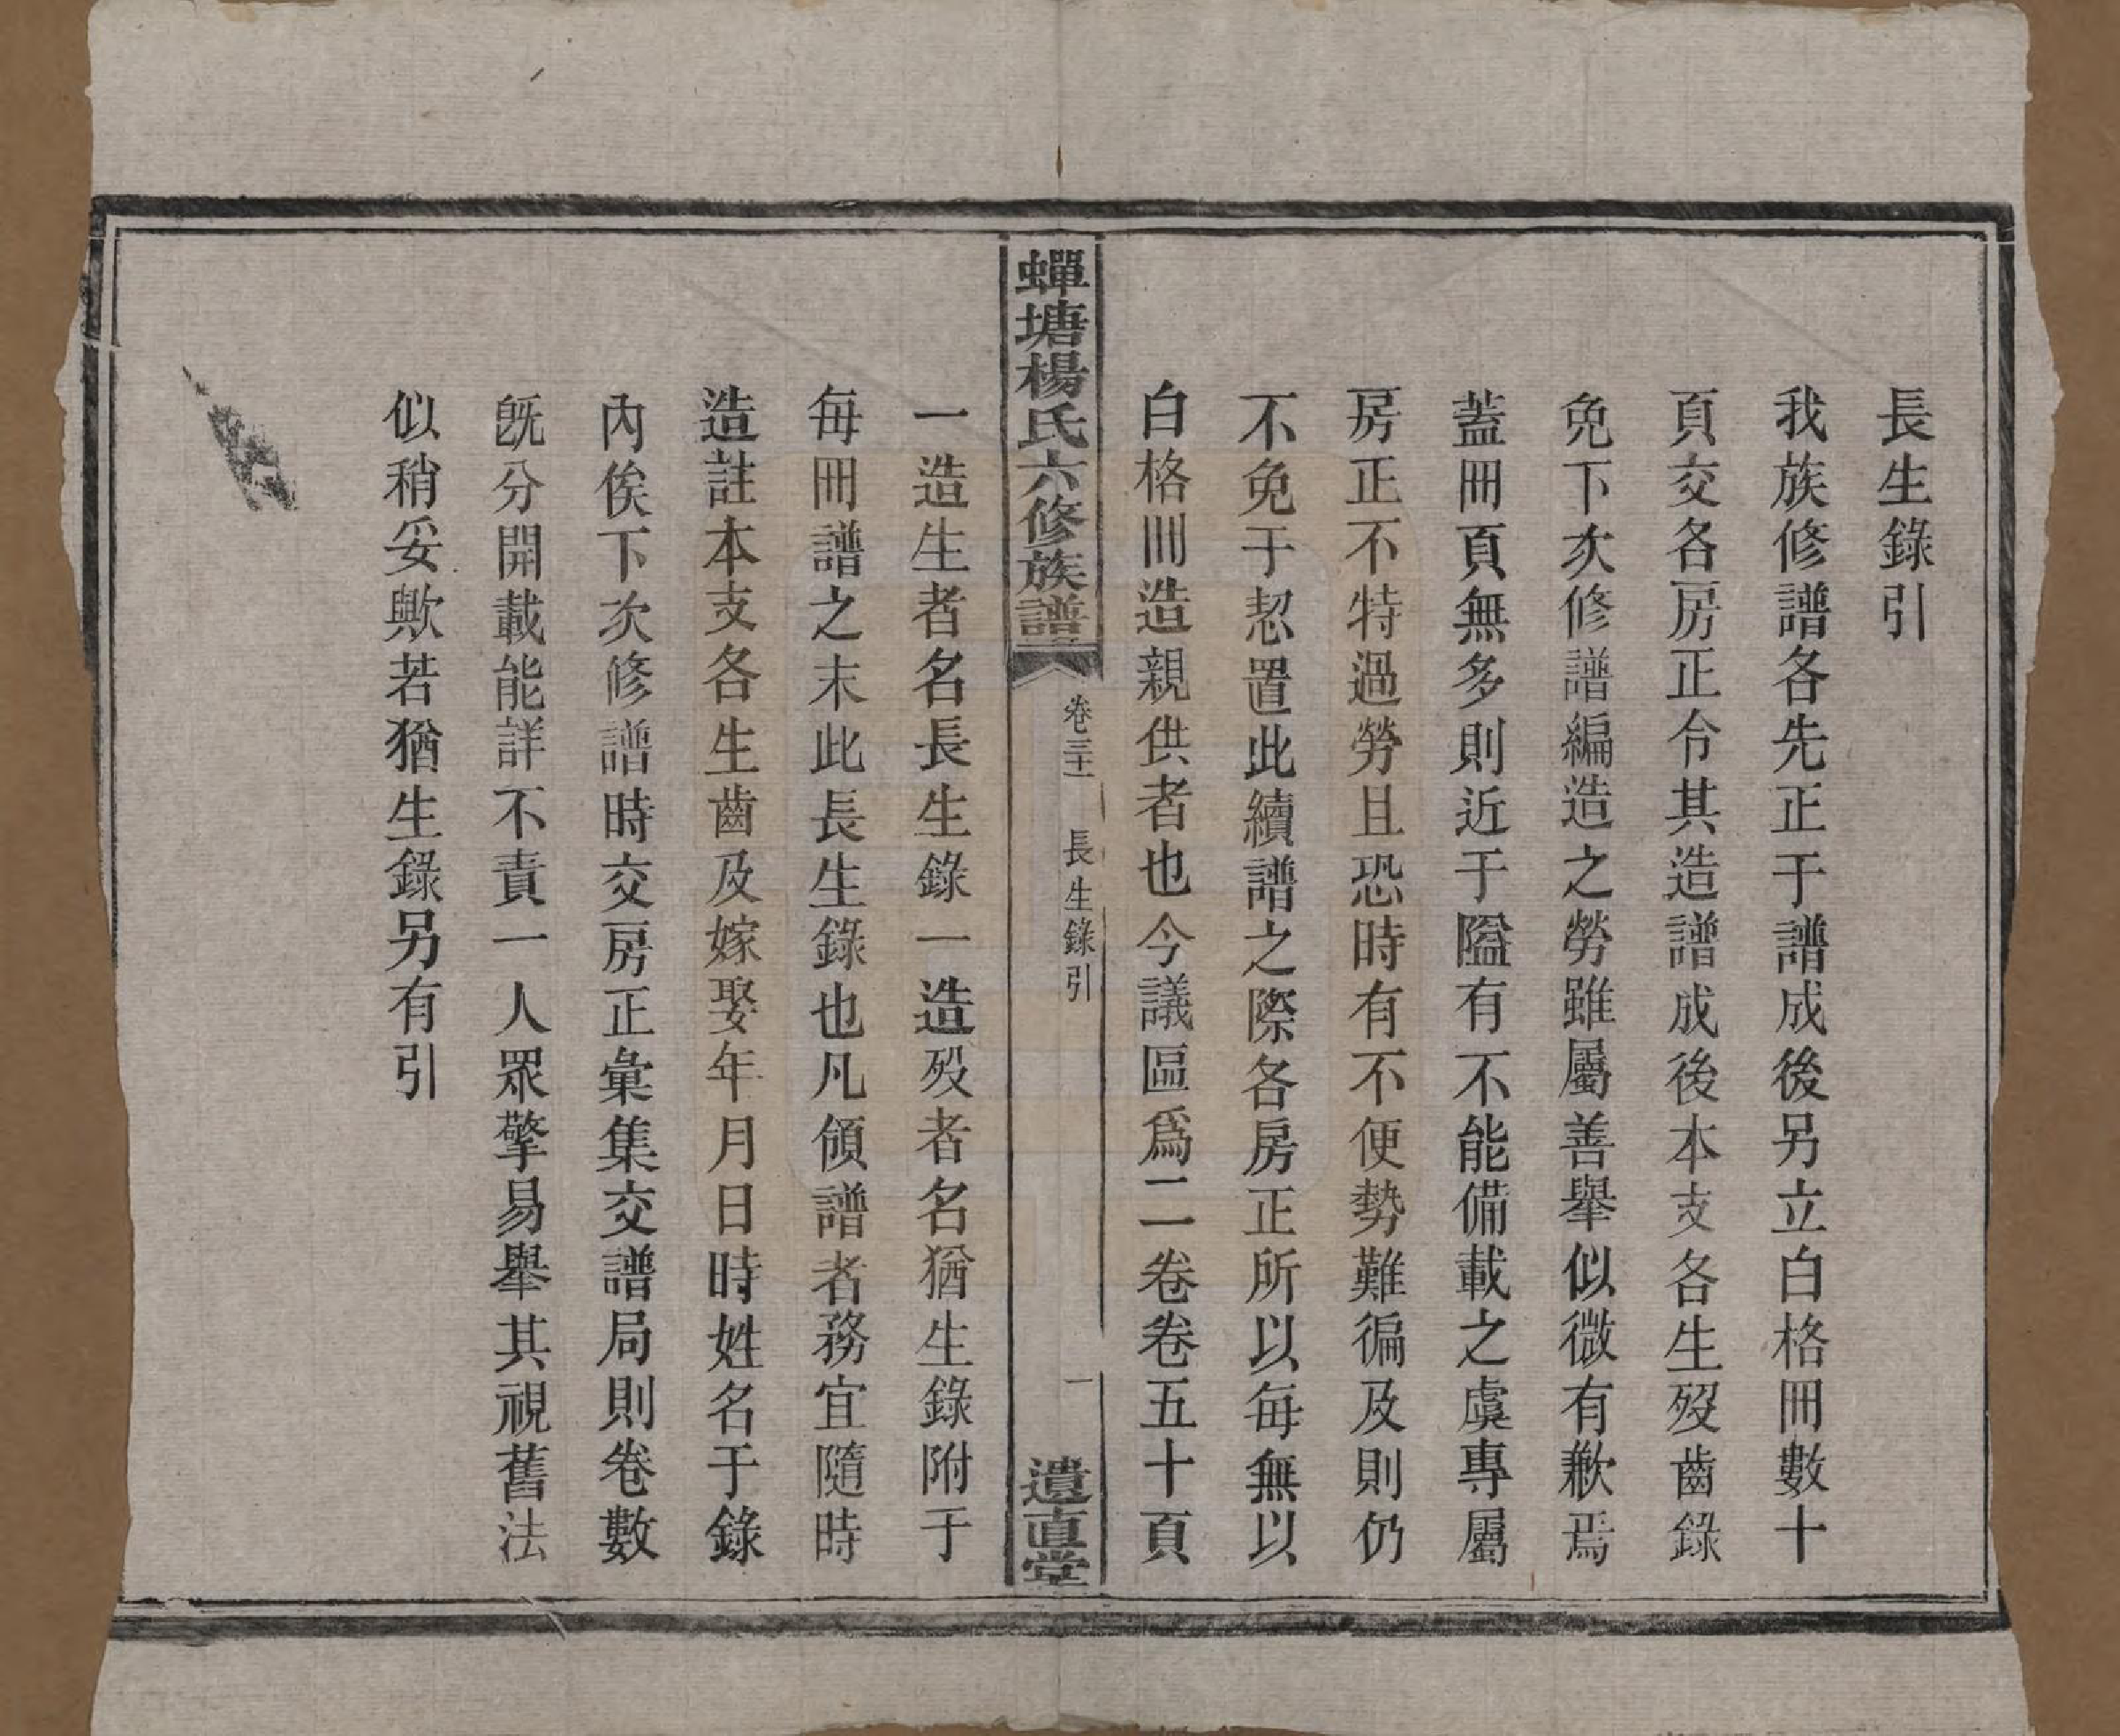 長生錄引
我族修譜各先正于譜成後另立白格冊數十
頁交各房正令其造譜成後本支各生歿齒錄
免下次修譜編造之勞雖屬善舉似微有歉焉
蓋冊頁無多則近于隘有不能備載之虞專屬
房正不特過勞且恐時有不便勢難徧及則仍
不免于恝置此續譜之際各房正所以每無以
白格冊造親供者也今議區爲二卷卷五十頁
蟬塘楊氏六修族譜
卷三十一
長生錄引
一
遺直堂
一造生者名長生錄一造歿者名猶生錄附于
每冊譜之末此長生錄也凡領譜者務宜隨時
造註本支各生齒及嫁娶年月日時姓名于錄
內俟下次修譜時交房正彙集交譜局則卷數
旣分開載能詳不責一人眾擎易舉其視舊法
似稍妥歟若猶生錄另有引